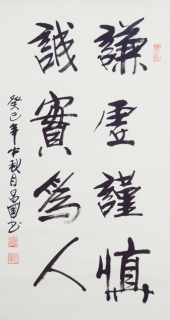 謙虛謹慎
誠實為人
癸巳年中秋月昌國书